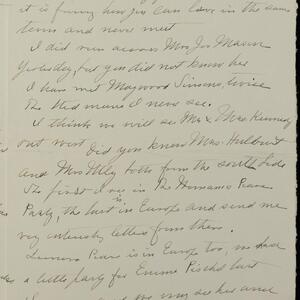 it is funny how you can live in the same
town and never meet
I did run across Mrs Jos Mason
Yesterday, but you did not know her
I have met Maywood Simons, twice
The Red man I never see.
I think we will see Mr & Mrs Kennedy
out west Did you know Mrs. Hulburt
and Mrs Ully both from the south Side
The first one is in The Woman's Peace
Party, the last in Europe and send me
very interesting letters from there.
Peace is in Europe too, we had
a little party for Emma last